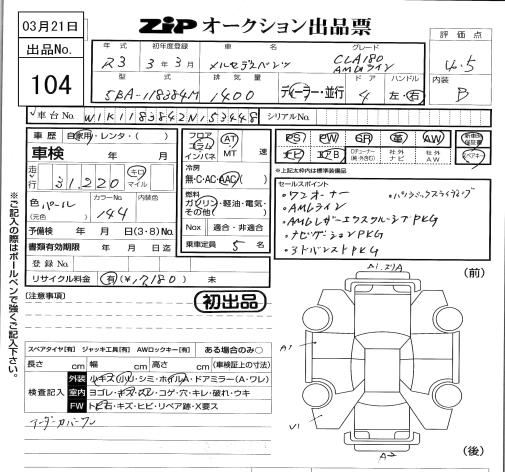 03月21日
ZIP オークション出品票
出品No.
104
年式 初年度登録 車名 グレード
R3 3年3月 メルセデスベンツ CLA180 AMGライン
評価点
4.5
内装
B
型式 排気量 ドア ハンドル
5BA-118384M 1400 ディーラー・並行 4 左・右
車台No. W1K1183842N153448 シリアルNo.
車歴 自家用・レンタ・( )
車検 年 月
走行 31,220 キロ マイル
色 パール カラーNo. 144 内装色
(元色)
予備検 年 月 日(3・8)No.
書類有効期限 年 月 日迄
登録No.
リサイクル料金 有(¥ ,180) 未
フロア コラム インパネ AT MT 速
冷房
無・C・AC・AAC( )
燃料
ガソリン・軽油・電気・その他( )
Nox 適合・非適合
乗車定員 5 名
PS PW SR 革 AW 新車時保証書
ナビ エアB Dチューナー(純・外含む) 社外ナビ 社外AW スペアキー
※上記太枠内は標準装備品
セールスポイント
・ワンオーナー ・パノラミックスライディング
・AMGライン
・AMGレザーエクスクルーシブPKG
・ナビゲーションPKG
・アドバンストPKG
[注意事項]
初出品
(前)
(後)
A1
V1
A
スペアタイヤ[有] ジャッキ工具[有] AWロックキー[有] ある場合のみ○
長さ cm 幅 cm 高さ cm (車検証上の寸法)
検査記入
外装 小キズ(小U)シミ・ホイルA・ドアミラー(A・ワレ)
室内 ヨゴレ・キズ・スレ・コゲ・穴・キレ・破れ・ウキ
FW トビ石・キズ・ヒビ・リペア跡・X要ス
アンダーカバーワレ
※ご記入の際はボールペンで強くご記入下さい。